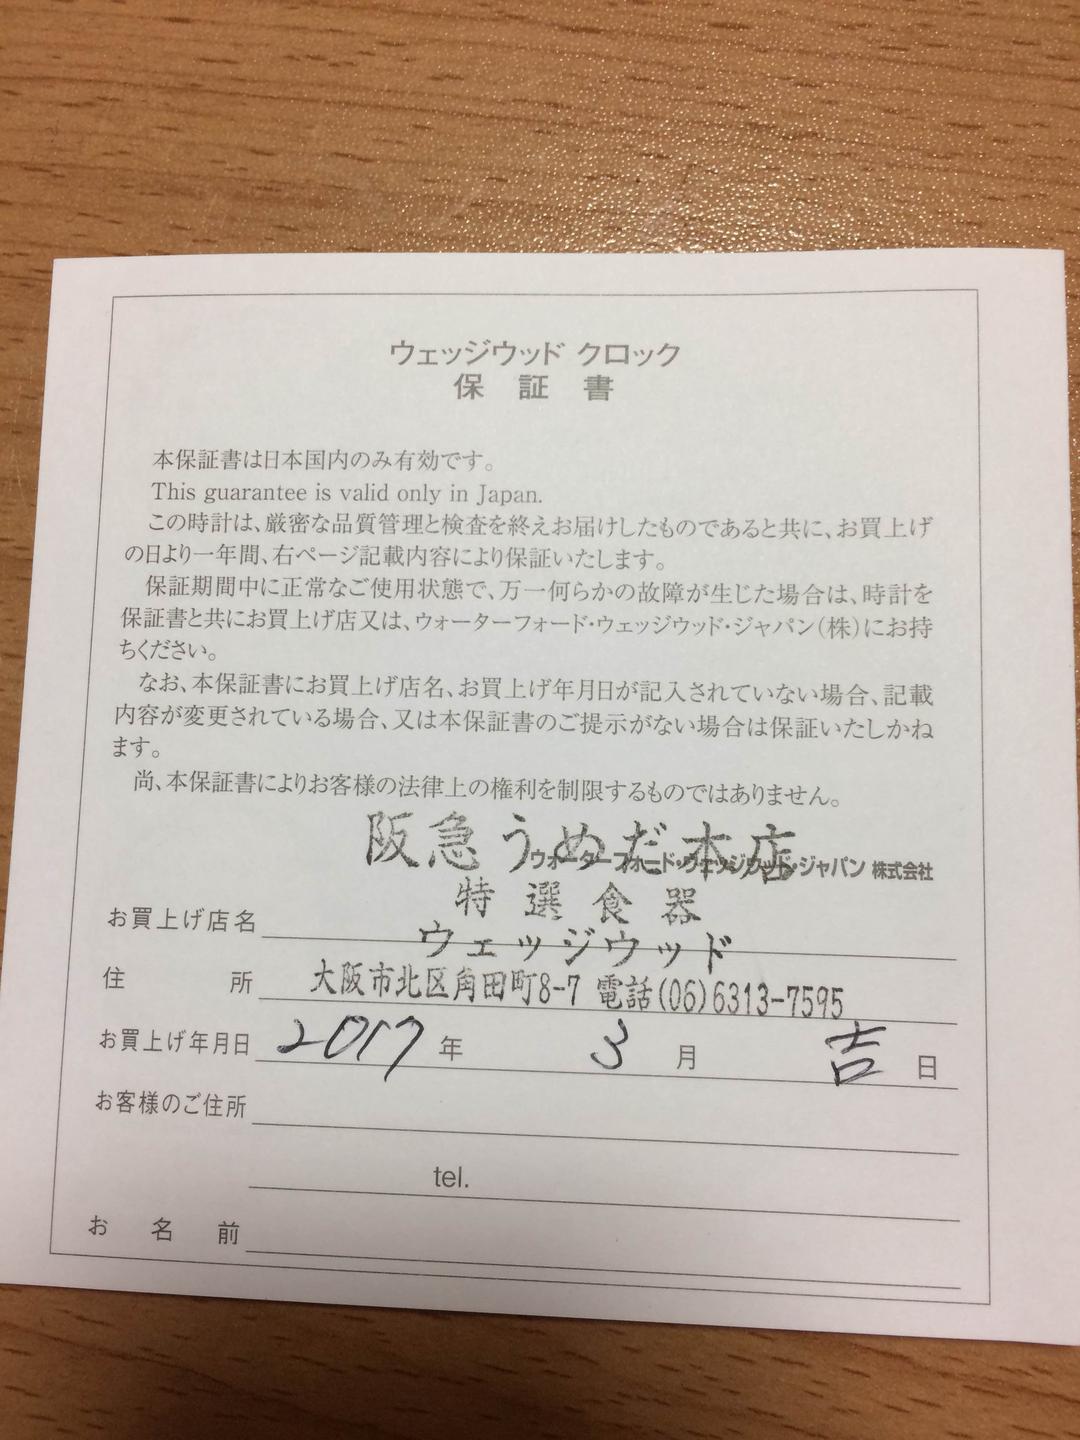 ウェッジウッド クロック
保証書
本保証書は日本国内のみ有効です。
This guarantee is valid only in Japan.
この時計は、厳密な品質管理と検査を終えお届けしたものであると共に、お買上げ
の日より一年間、右ページ記載内容により保証いたします。
保証期間中に正常なご使用状態で、万一何らかの故障が生じた場合は、時計を
保証書と共にお買上げ店又は、ウォーターフォード・ウェッジウッド・ジャパン(株)にお持
ちください。
なお、本保証書にお買上げ店名、お買上げ年月日が記入されていない場合、記載
内容が変更されている場合、又は本保証書のご提示がない場合は保証いたしかね
ます。
尚、本保証書によりお客様の法律上の権利を制限するものではありません。
阪急うめだ本店
ウォーターフォード・ウェッジウッド・ジャパン 株式会社
特選食器
お買上げ店名
ウェッジウッド
住所 大阪市北区角田町8-7 電話(06)6313-7595
お買上げ年月日 2017 年 3 月 吉 日
お客様のご住所
tel.
お名前